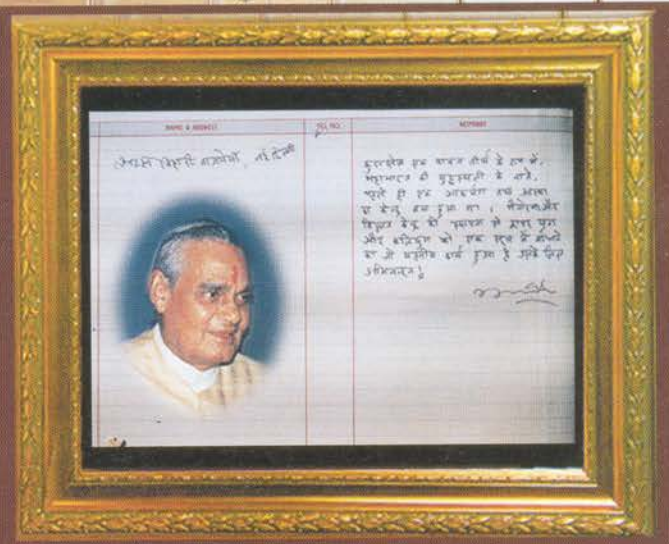 NAME & ADDRESS
TEL. NO.
REMARKS
अटल बिहारी वाजपेयी, नई दिल्ली
कुरुक्षेत्र एक पावन तीर्थ के रूप में,
महाभारत की युद्धस्थली के नाते,
पहले ही एक आकर्षण तथा आस्था
का केन्द्र बना हुआ था।
विज्ञान केन्द्र की स्थापना से द्वापर युग
और कलियुग को एक सूत्र में बांधने
का जो कार्य हुआ है उसके लिए
अभिनन्दन!